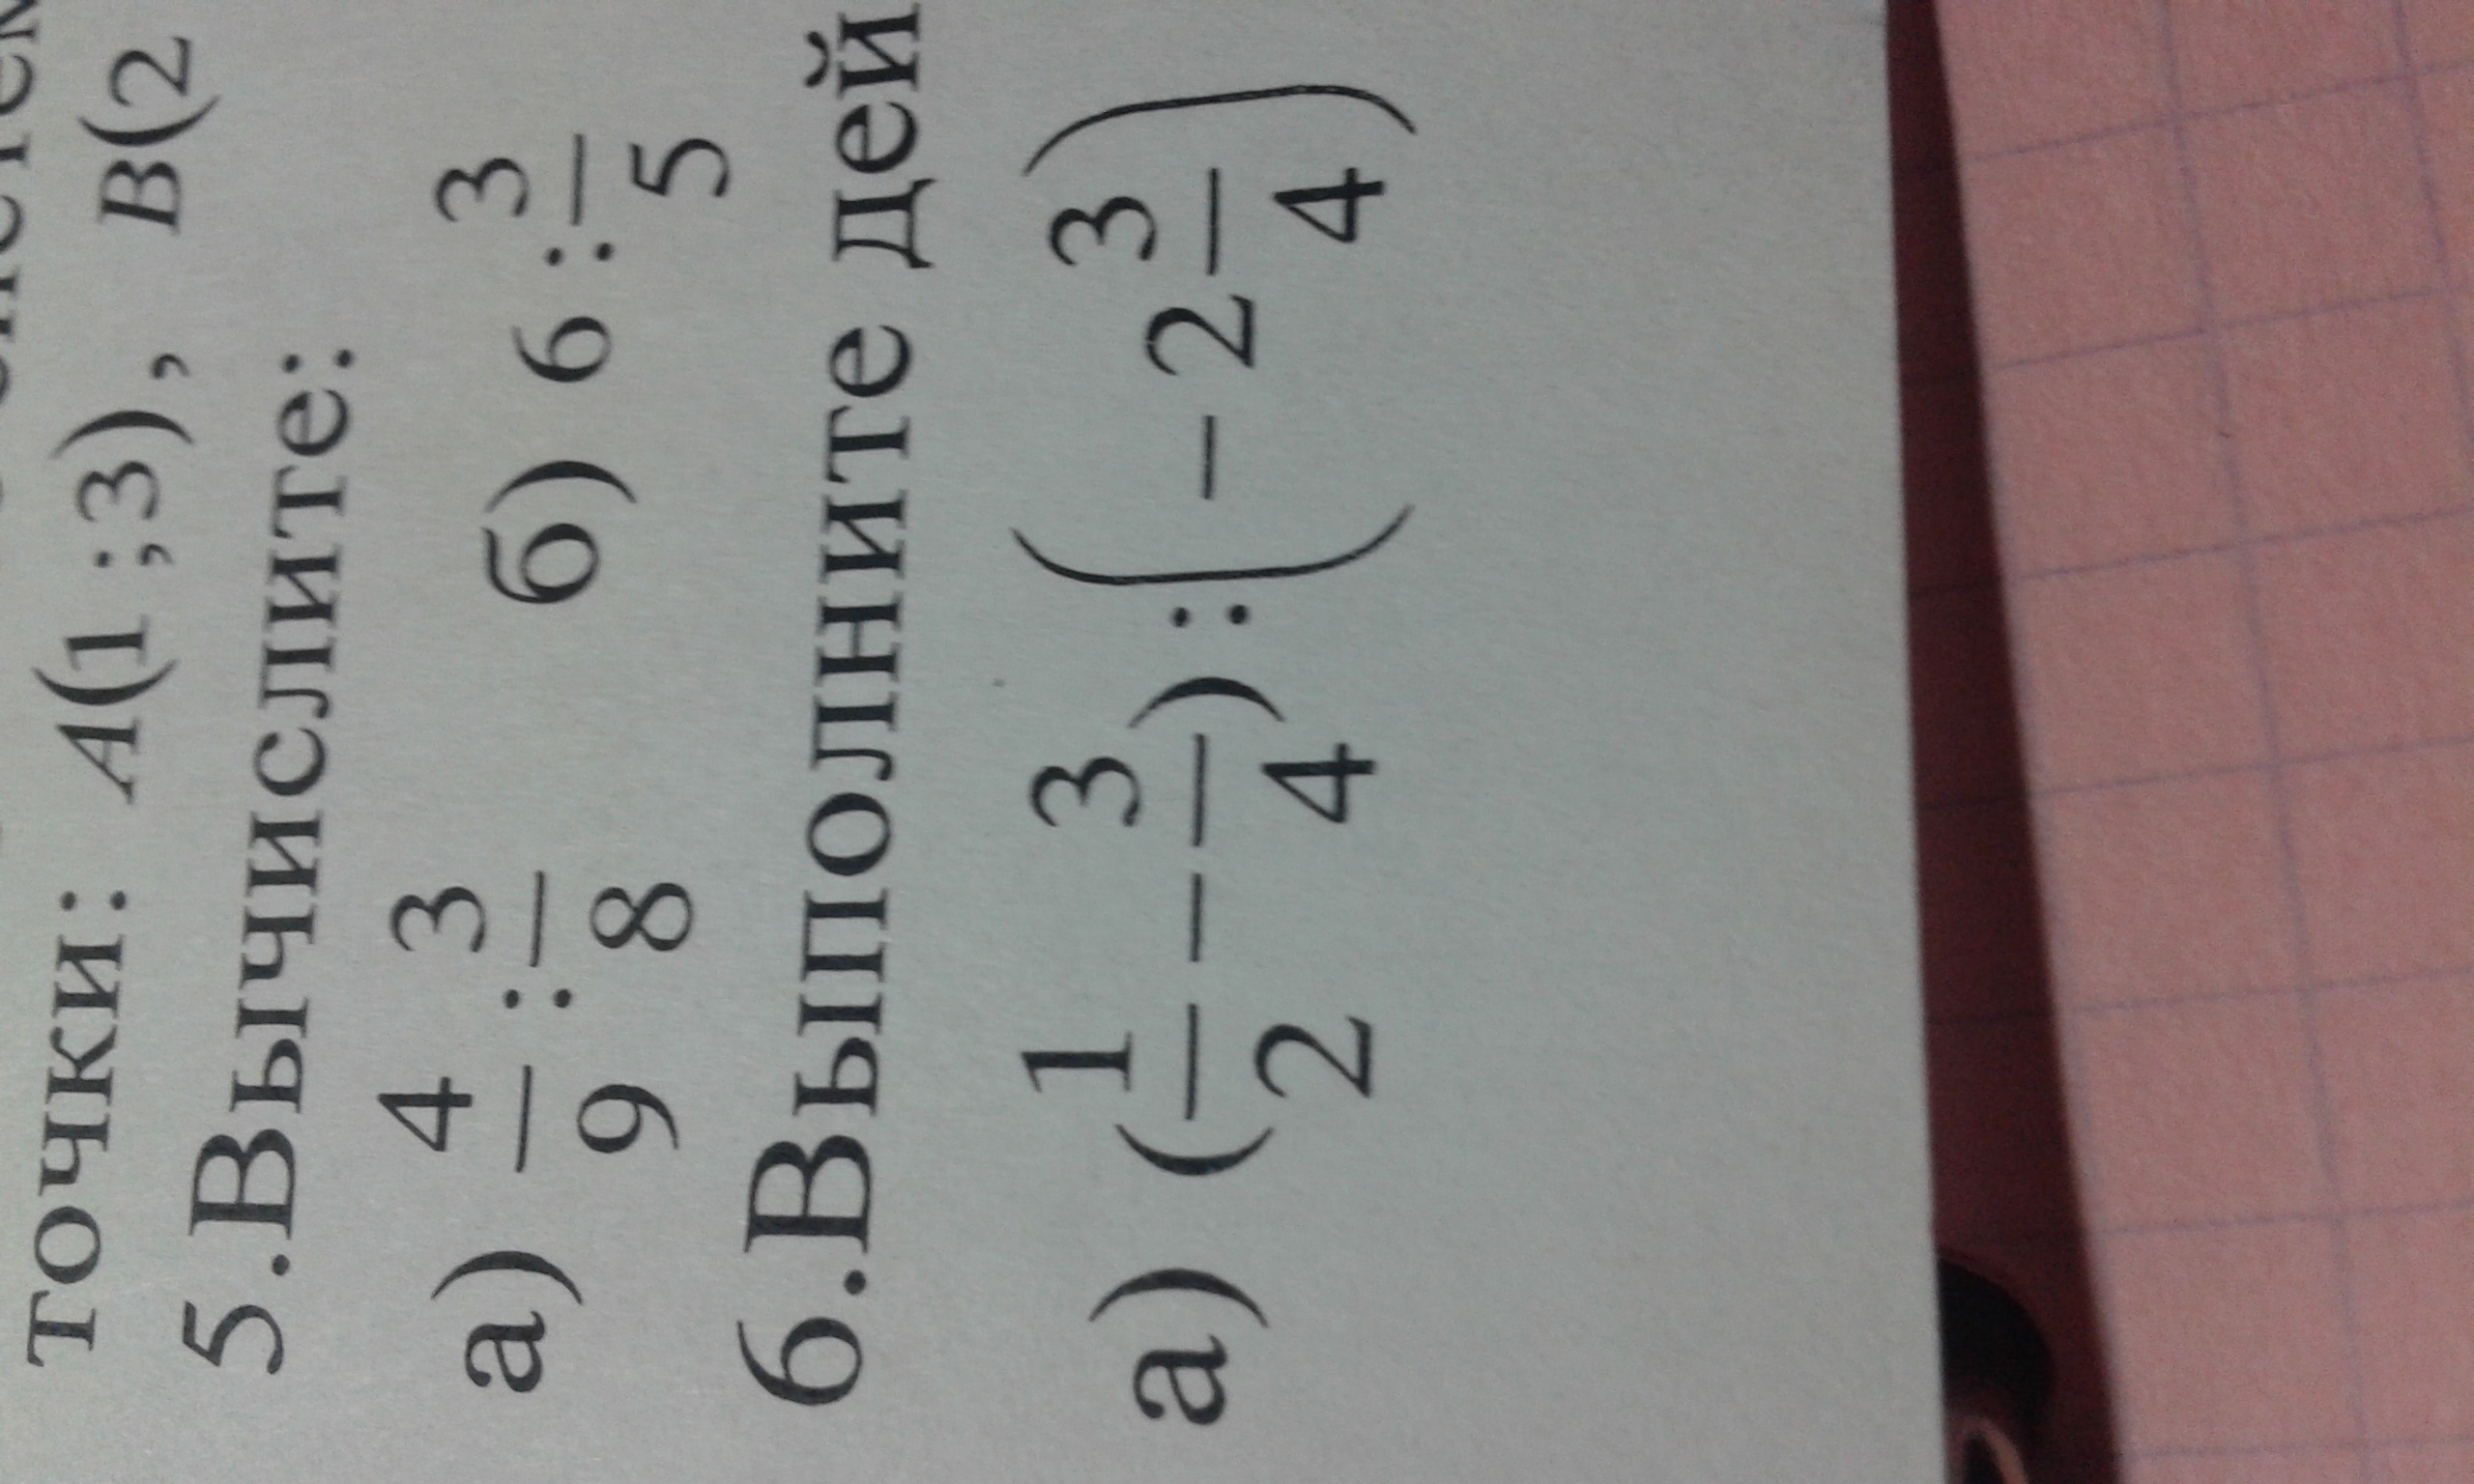 точки: A(1;3), B(2
5.Вычислите:
а) 4/9 : 3/8 б) 6 : 3/5
6.Выполните дей
а) (1/2 - 3/4) : (- 2 3/4)